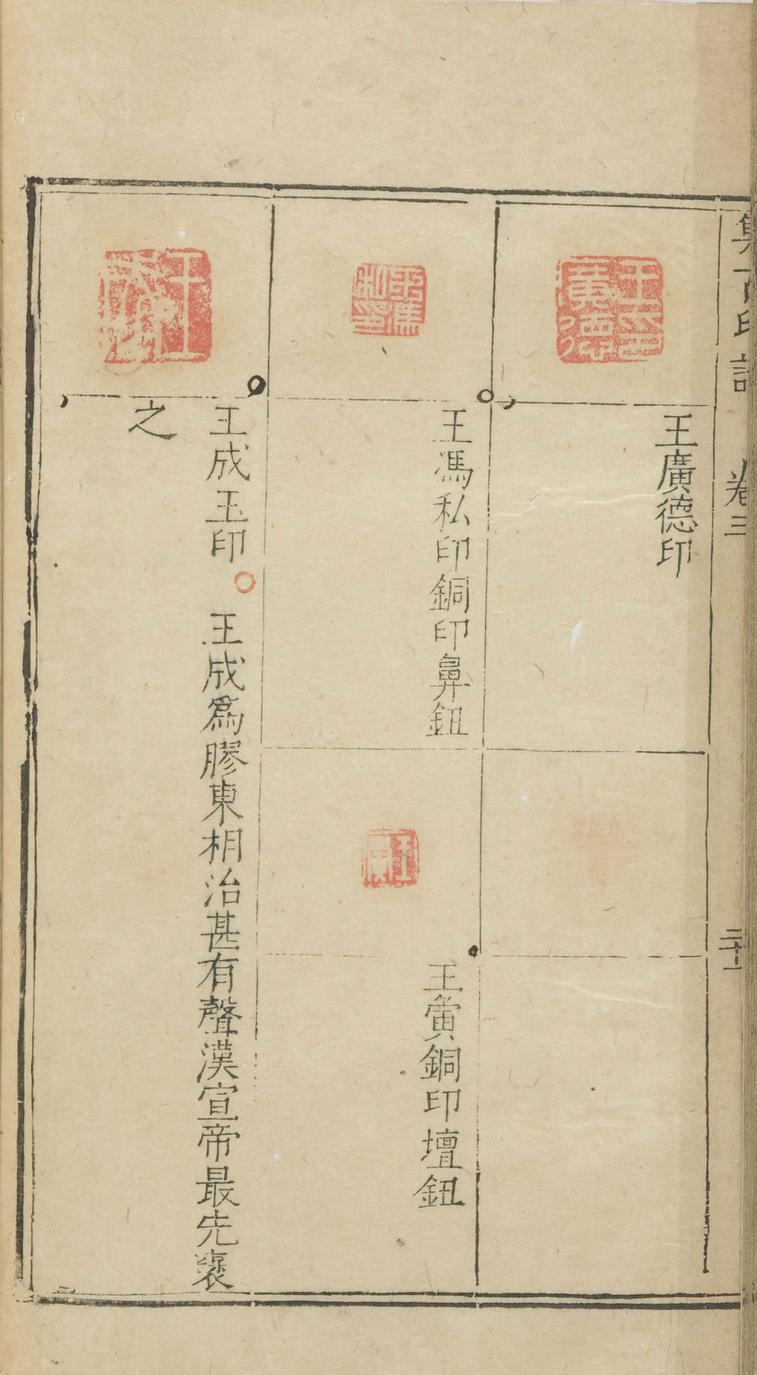 集古印譜 卷三
三十一
王廣德印
王廣德印
王馮私印
王馮私印銅印鼻鈕
王寅
王寅銅印壇鈕
王成玉印 王成爲膠東相治甚有聲漢宣帝最先褒
之